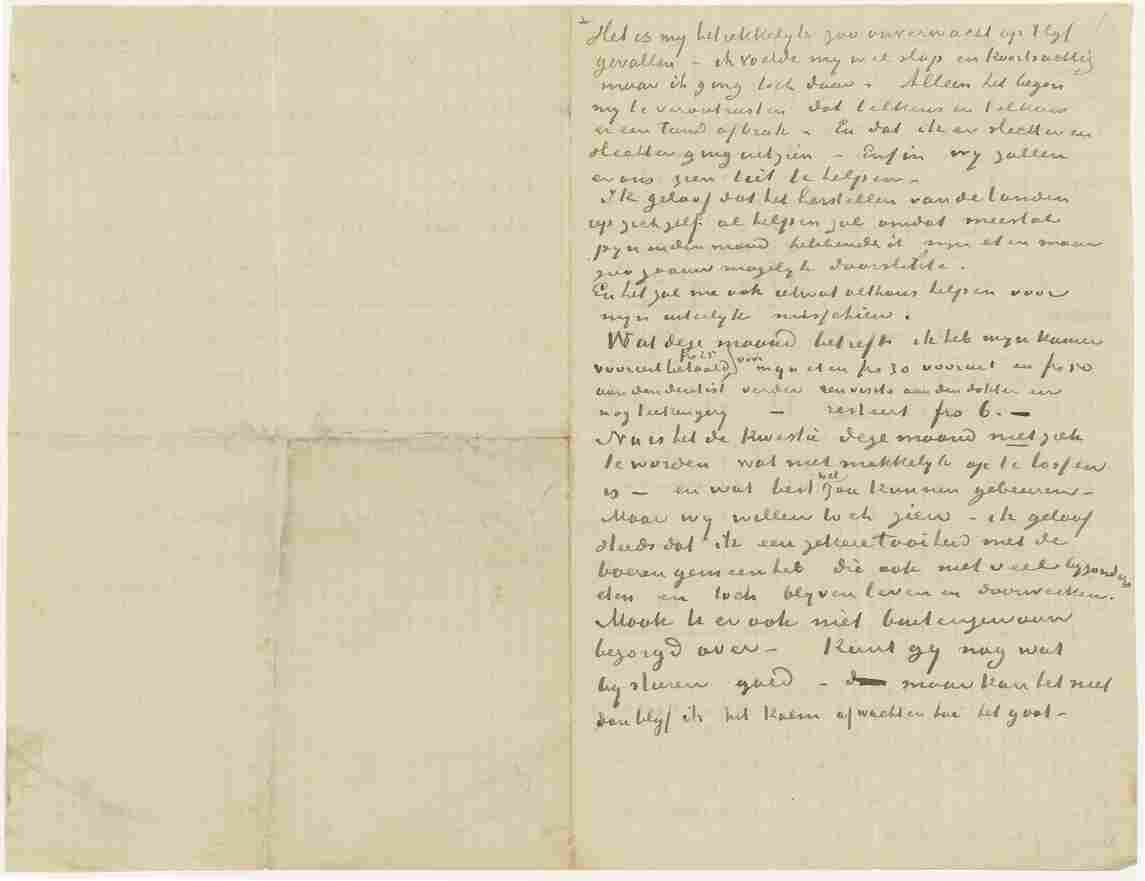 2
Het is my betrekkelyk zoo onverwacht op 't lyf
gevallen – ik voelde my wel slap en koortsachtig
maar ik ging toch door. Alleen het begon
my te verontrusten dat telkens en telkens
er een tand afbrak. En dat ik er slechter en
slechter ging uitzien – Enfin wy zullen
er ons zien uit te helpen.
Ik geloof dat het herstellen van de tanden
op zich zelf al helpen zal omdat meestal
pyn in den mond hebbende ik myn eten maar
zoo gaauw mogelyk doorslikte.
En het zal me ook ietwat althans helpen voor
myn uiterlyk misschien.
Wat deze maand betreft ik heb myn kamer
vooruit betaald, fr. 25 voor myn eten frs 30 vooruit en frs 50
aan den dentist verder een visite aan den dokter en
nog teekengerij – resteert frs 6. –
Nu is het de kwestie deze maand niet ziek
te worden wat niet makkelyk op te lossen
is – en wat best wel zou kunnen gebeuren –
Maar wy willen toch zien – ik geloof
steeds dat ik een zekere taaiheid met de
boeren gemeen heb die ook niet veel byzonders
eten en toch blyven leven en doorwerken.
Maak U er ook niet buitengewoon
bezorgd over – Kunt gy nog wat
by sturen goed – maar kan het niet
dan blyf ik het kalm afwachten hoe het gaat –